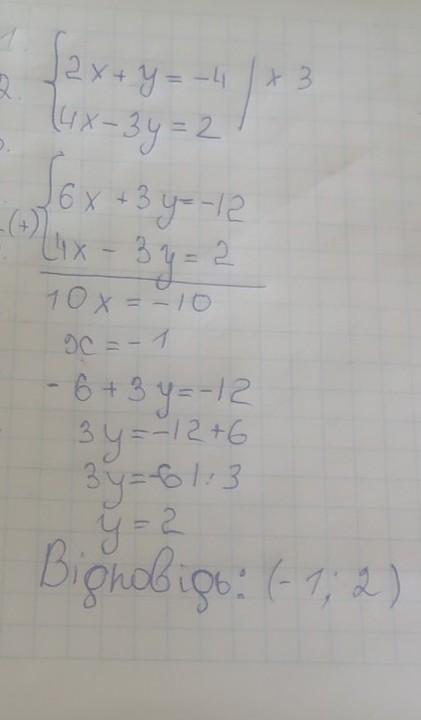 1.
{2x + y = -4 | × 3
2.
{4x - 3y = 2
{6x + 3y = -12
(+)
{4x - 3y = 2
10x = -10
x = -1
-6 + 3y = -12
3y = -12 + 6
3y = -6 | : 3
y = 2
Відповідь: (-1; 2)